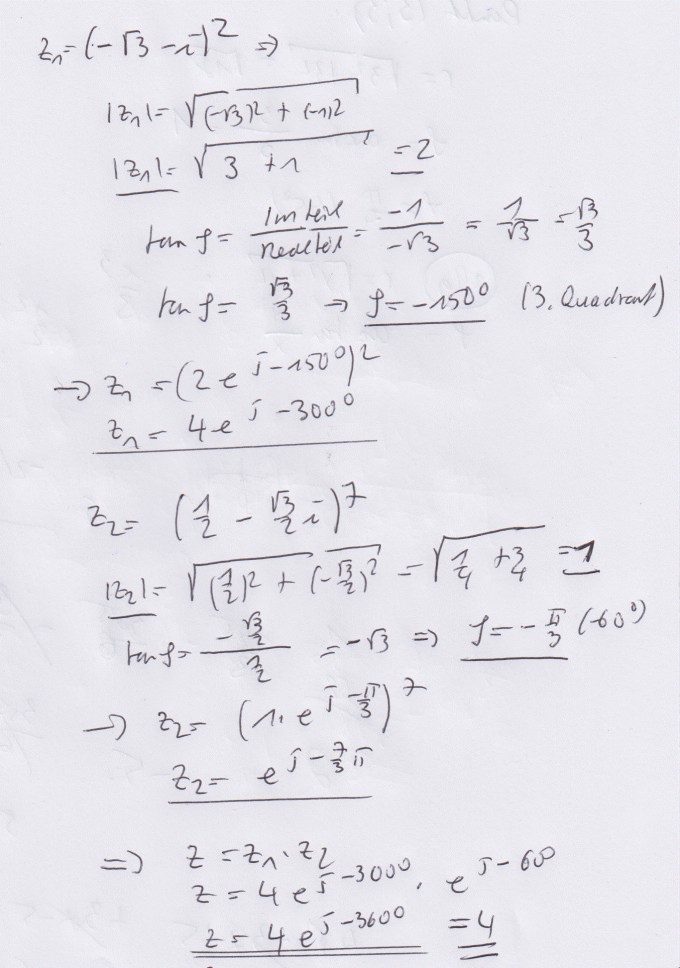 z₁ = (-√3 - i)² ⇒
|z₁| = √((-√3)² + (-1)²
|z₁| = √(3 + 1) = 2
tan φ = Imteil / Realteil = -1 / -√3 = 1/√3 = √3/3
tan φ = √3/3 → φ = -150° (3. Quadrant)
→ z₁ = (2 e^(j -150°))²
z₁ = 4 e^(j -300°)
z₂ = (1/2 - √3/2 i)⁷
|z₂| = √((1/2)² + (-√3/2)²) = √(1/4 + 3/4) = 1
tan φ = (-√3/2) / (1/2) = -√3 ⇒ φ = -π/3 (-60°)
→ z₂ = (1 · e^(j -π/3))⁷
z₂ = e^(j -7/3 π)
⇒ z = z₁ · z₂
z = 4 e^(j -300°) · e^(j -60°)
z = 4 e^(j -360°) = 4